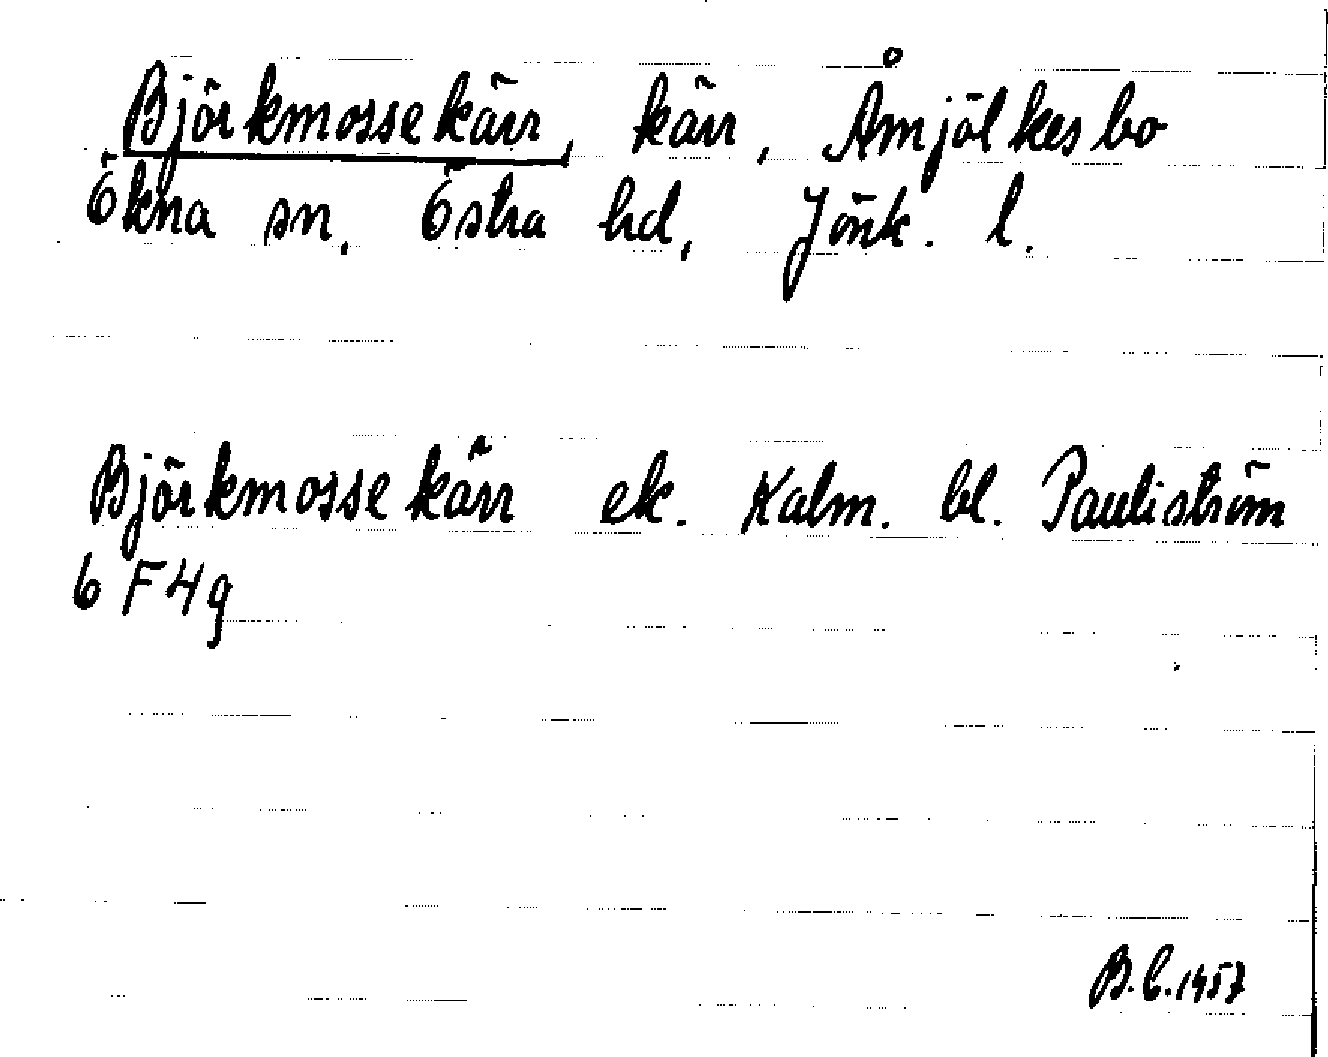 Björkmossekärr, kärr, Åmjölkesbo
Ökna sn, Östra hd, Jönk. l.
Björkmossekärr ek. Kalm. bl. Pauliström
6 F 4 g
B.C. 1957